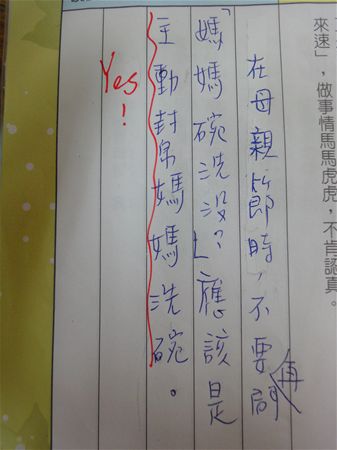 來速」，做事情馬馬虎虎，不肯認真。
在母親節時，不要再問
「媽媽碗洗沒？」應該是
主動幫媽媽洗碗。
Yes!